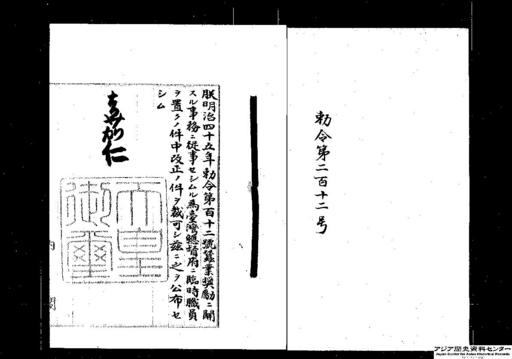 勅令第二百十二号
朕明治四十五年勅令第百十二號蠶業奬勵ニ關
スル事務ニ從事セシムル爲臺灣總督府ニ臨時職員
ヲ置クノ件中改正ノ件ヲ裁可シ茲ニ之ヲ公布セ
シム
嘉仁
天皇
御璽
内閣
アジア歴史資料センター
Japan Center for Asian Historical Records